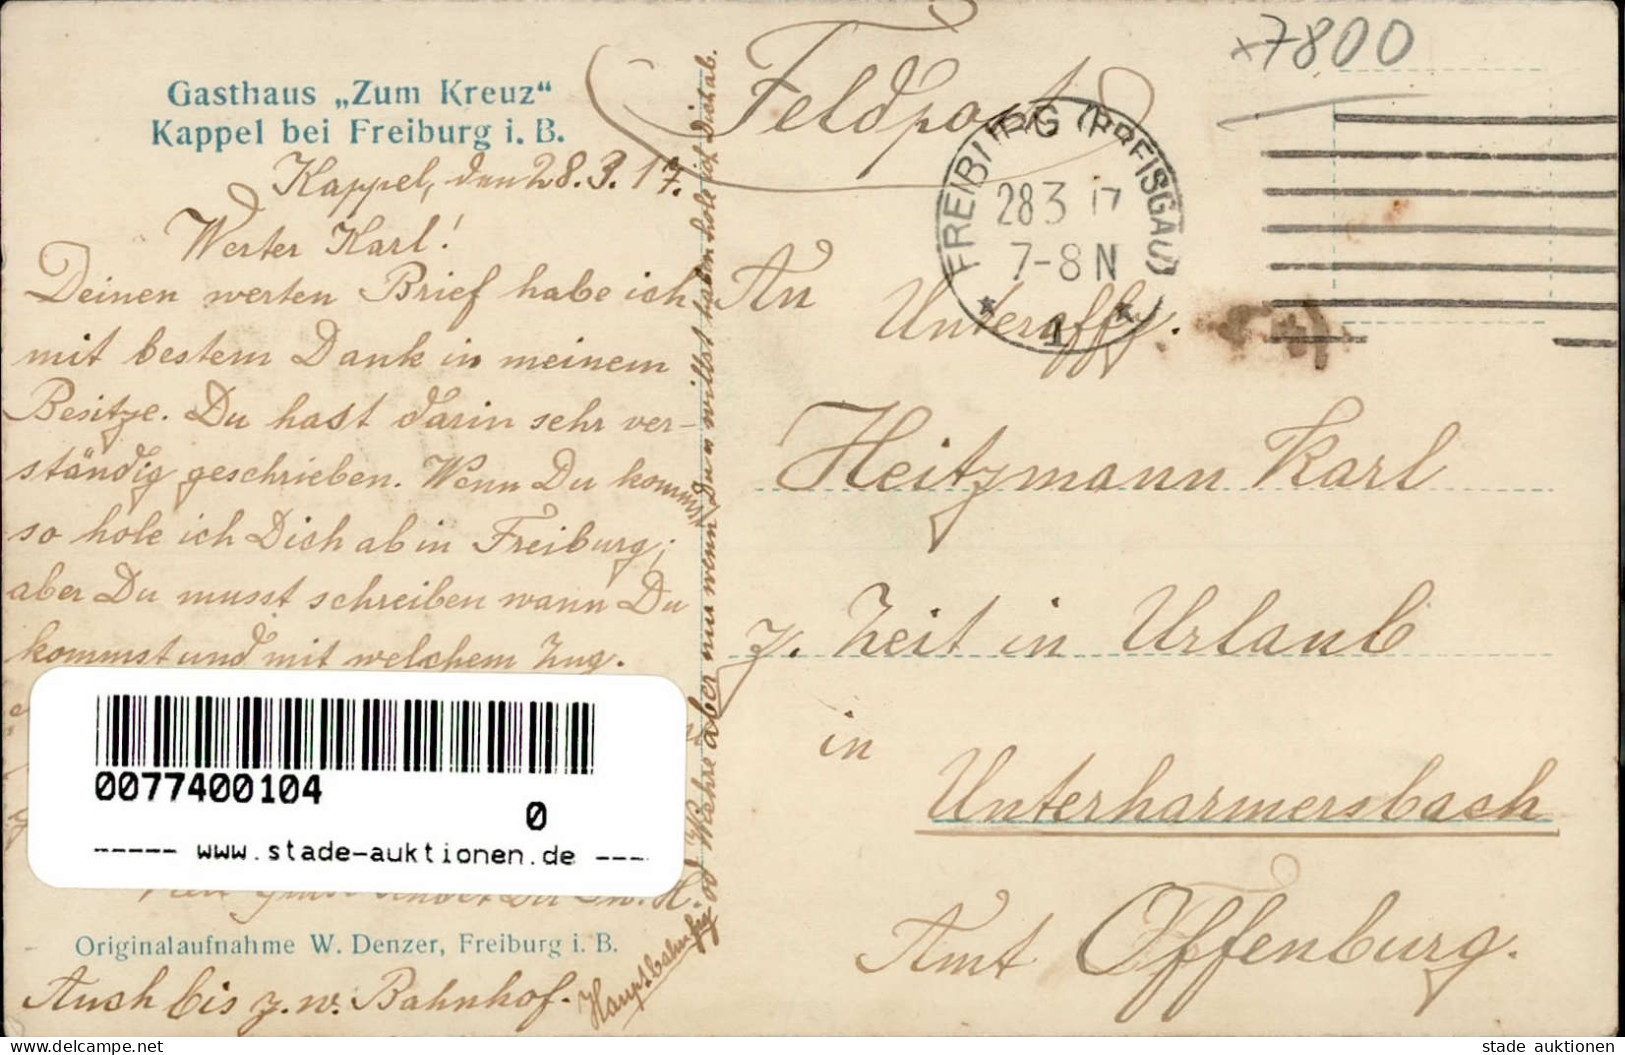 x7800
Gasthaus „Zum Kreuz“
Kappel bei Freiburg i. B.
Feldpost
FREIBURG (BREISGAU)
28 3 17
7-8 N
* 1 *
Kappel, den 28.3.17.
Werter Karl!
Deinen werten Brief habe ich
mit bestem Dank in meinem
Besitze. Du hast darin sehr ver-
ständig geschrieben. Wenn Du kommst
so hole ich Dich ab in Freiburg;
aber Du musst schreiben wann Du
kommst und mit welchem Zug.
0077400104
0
----- www.stade-auktionen.de ---
Originalaufnahme W. Denzer, Freiburg i. B.
Auch bis z. w. Bahnhof.
Hauptbahnhof
aber nur wenn Du es willst haben hole ich Dich ab.
An
Unteroffz.
Heitzmann Karl
z. Zeit in Urlaub
in
Unterharmersbach
Amt Offenburg.
stade auktionen
www.delcampe.net
stade auktionen